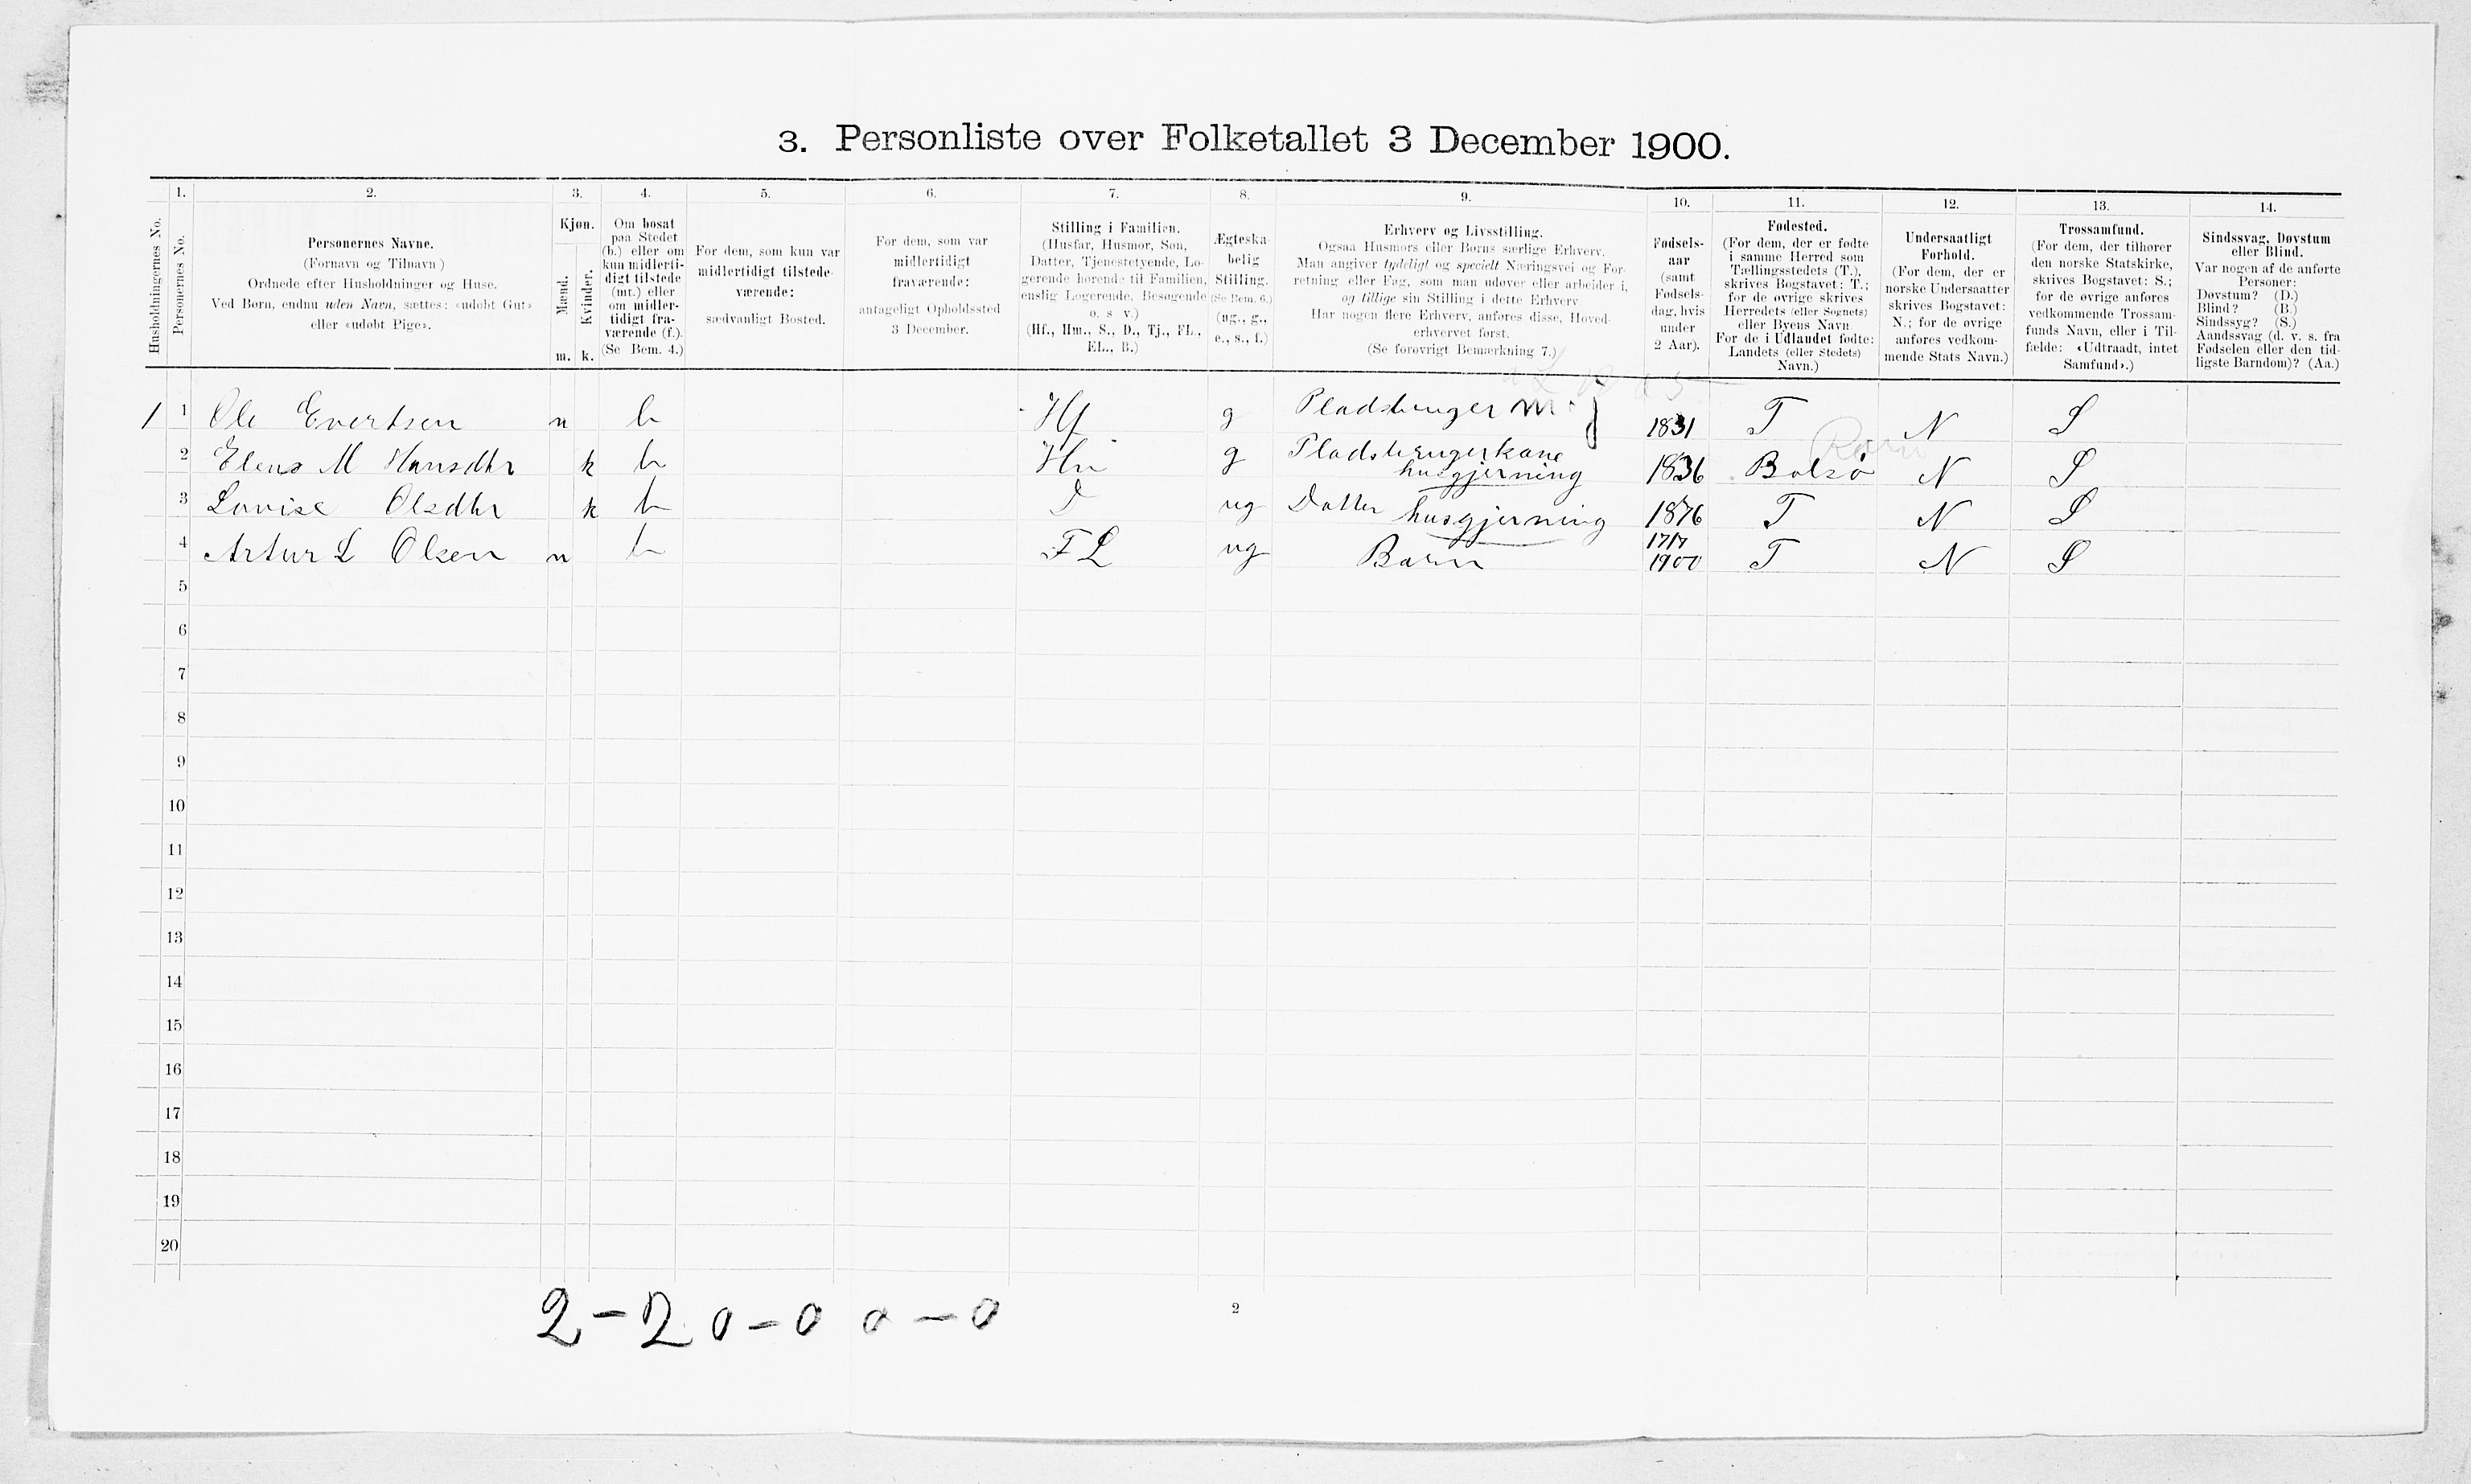 3. Personliste over Folketallet 3 December 1900.
Husholdningernes No.
1.
Personernes No.
2.
Personernes Navne.
(Fornavn og Tilnavn)
Ordnede efter Husholdninger og Huse.
Ved Børn, endnu uden Navn, sættes: «udøbt Gut»
eller «udøbt Pige».
3.
Kjøn.
Mænd.
Kvinder.
m. k.
4.
Om bosat
paa Stedet
(b.) eller om
kun midlerti-
digt tilstede
(mt.) eller
om midler-
tidigt fra-
værende (f.).
(Se Bem. 4.)
5.
For dem, som kun var
midlertidigt tilstede-
værende:
sædvanligt Bosted.
6.
For dem, som var
midlertidigt
fraværende:
antageligt Opholdssted
3 December.
7.
Stilling i Familien.
(Husfar, Husmor, Søn,
Datter, Tjenestetyende, Lo-
gerende hørende til Familien,
enslig Logerende, Besøgende
o. s. v.)
(Hf., Hm., S., D., Tj., FL.,
EL., B.)
8.
Ægteska-
belig
Stilling.
(Se Bem. 6.)
(ug., g.,
e., s., f.)
9.
Erhverv og Livsstilling.
Ogsaa Husmors eller Børns særlige Erhverv.
Man angiver tydeligt og specielt Næringsvei og For-
retning eller Fag, som man udøver eller arbeider i,
og tillige sin Stilling i dette Erhverv
Har nogen flere Erhverv, anføres disse, Hoved-
erhvervet først.
(Se forøvrigt Bemærkning 7.)
10.
Fødsels-
aar
(samt
Fødsels-
dag, hvis
under
2 Aar).
11.
Fødested.
(For dem, der er fødte
i samme Herred som
Tællingsstedets (T.),
skrives Bogstavet: T.;
for de øvrige skrives
Herredets (eller Sognets)
eller Byens Navn.
For de i Udlandet fødte:
Landets (eller Stedets)
Navn.)
12.
Undersaatligt
Forhold.
(For dem, der er
norske Undersaatter
skrives Bogstavet:
N.; for de øvrige
anføres vedkom-
mende Stats Navn.)
13.
Trossamfund.
(For dem, der tilhører
den norske Statskirke,
skrives Bogstavet: S.;
for de øvrige anføres
vedkommende Trossam-
funds Navn, eller i Til-
fælde: «Udtraadt, intet
Samfund».)
14.
Sindssvag, Døvstum
eller Blind.
Var nogen af de anførte
Personer:
Døvstum? (D.)
Blind? (B.)
Sindssyg? (S.)
Aandssvag (d. v. s. fra
Fødselen eller den tid-
ligste Barndom)? (Aa.)
1 1 Ole Evertsen m b Hf g Pladsbruger m. j 1831 T N S
2 Elens M Hansdtr k b Hm g Pladsbrugerkone
husgjerning 1836 Bolsø N S
3 Lovise Olsdtr k b D ug Datter husgjerning 1876 T N S
4 Artur L Olsen m b FL ug Barn 17/7
1900 T N S
5
6
7
8
9
10
11
12
13
14
15
16
17
18
19
20
2 - 2 0 - 0 0 - 0
2